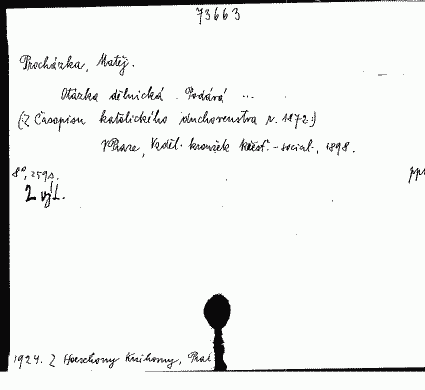 73663
Procházka, Matěj.
Otázka dělnická. Podává ...
(:Z Časopisu katolického duchovenstva r. 1872:)
V Praze, Vzděl. kroužek křesť.-social., 1898.
8°, 259 s.
2 výt.
1924. Z Hoeschovy Knihovny,